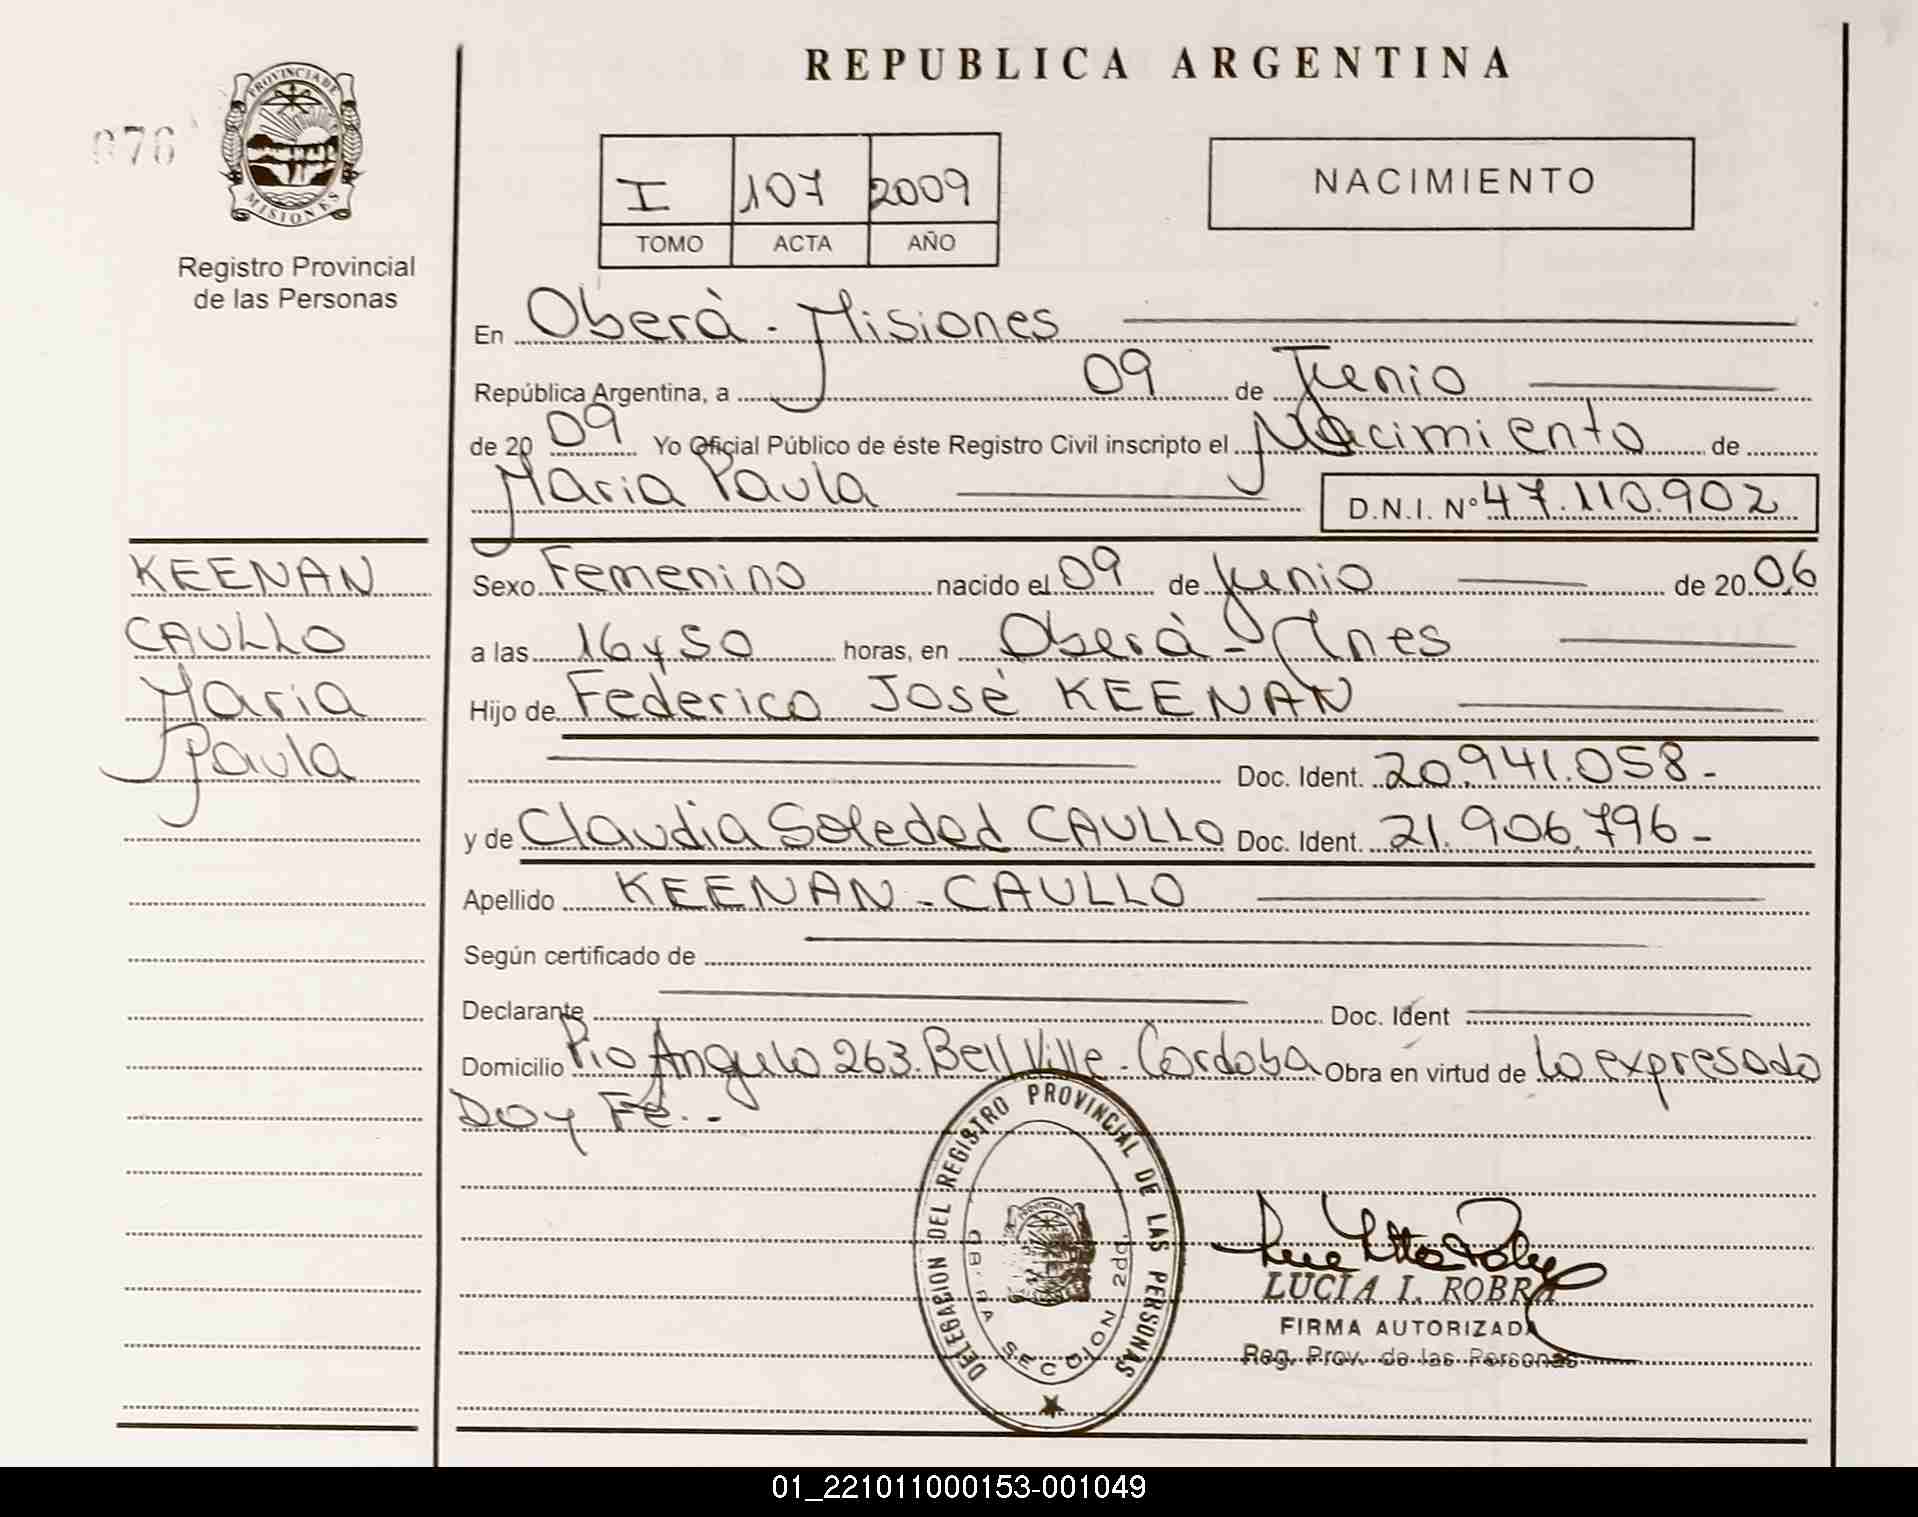 REPUBLICA ARGENTINA
076
PROVINCIA DE
MISIONES
Registro Provincial
de las Personas
I 107 2009
TOMO ACTA AÑO
NACIMIENTO
En Oberà - Misiones
República Argentina, a 09 de Junio
de 20 09 Yo Oficial Público de éste Registro Civil inscripto el Nacimiento de
Maria Paula D.N.I. Nº 47.110.902
KEENAN
CAULLO
Maria
Paula
Sexo Femenino nacido el 09 de Junio de 20 06
a las 16 y 50 horas, en Oberà - Mnes
Hijo de Federico José KEENAN
Doc. Ident. 20.941.058-
y de Claudia Soledad CAULLO Doc. Ident. 21.906.796-
Apellido KEENAN - CAULLO
Según certificado de
Declarante Doc. Ident
Domicilio Pio Angulo 263. Bell Ville - Cordoba Obra en virtud de lo expresado
Doy Fe. -
DELEGACION DEL REGISTRO PROVINCIAL DE LAS PERSONAS
SECCION 2da.
LUCIA I. ROBRA
FIRMA AUTORIZADA
Reg. Prov. de las Personas
01_221011000153-001049